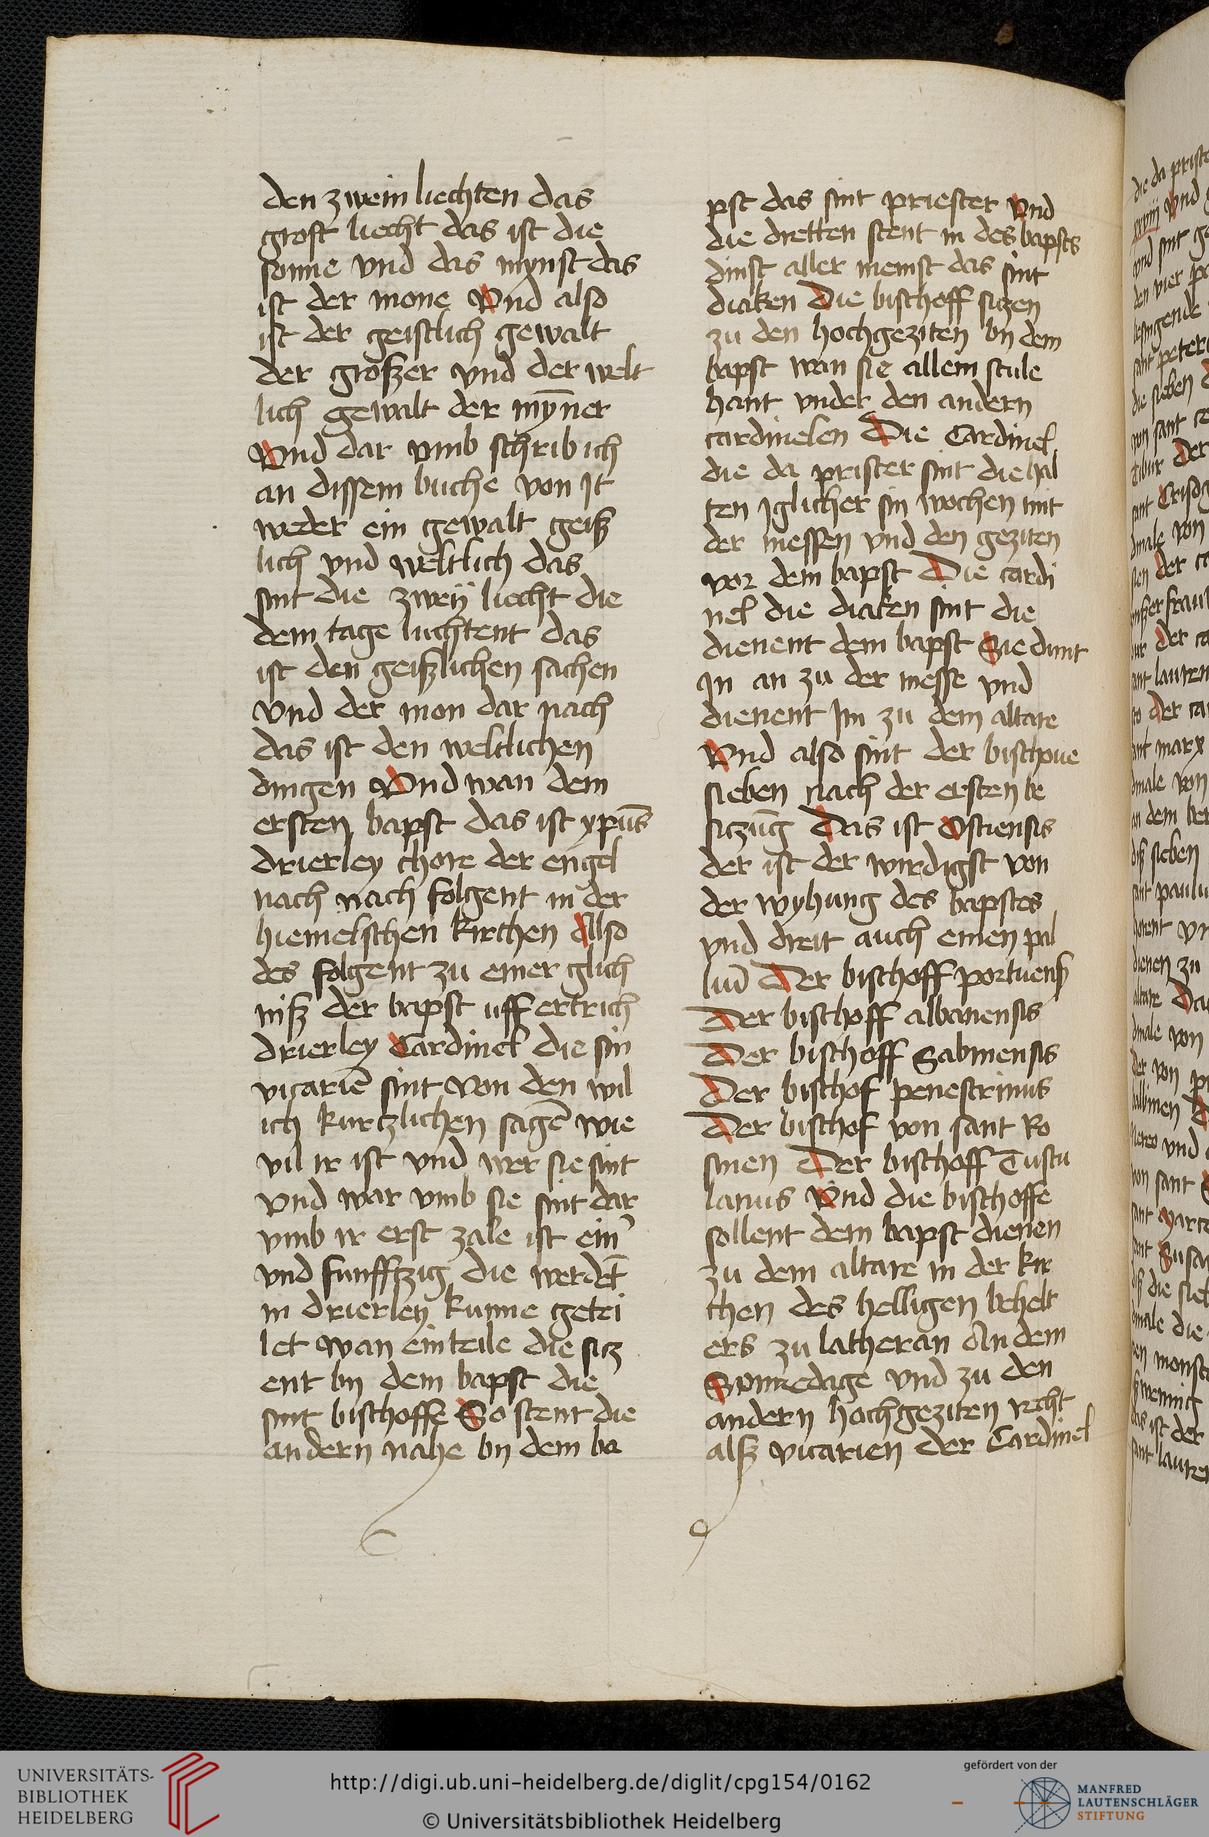 den zwein liechten das
grost liecht das ist die
sonne vnd das mynst das
ist der mone Vnd also
ist der geistlich gewalt
der großer vnd der welt
lich gewalt der mȳner
Vnd dar vmb schrib ich
an dissem buche von Jt
weder ein gewalt geiß
lich vnd weltlich das
sint die zweÿ liecht die
dem tage luchtent das
ist den geißlichen sachen
vnd der mon dar nach
das ist den weltlichen
dingen Vnd wan dem
ersten bapst das ist xpūs
drierley chore der engel
nach nach folgent in der
hiemelschen kirchen Also
des folgent zu einer glich
niß der bapst uff ertrich
drierley Cardinel die sin
vicariē sint von den wil
ich kurtzlichen sagē wie
vil ir ist vnd wer sie sint
vnd war vmb sie sint dar
vmb ir erst zale ist ein
vnd funfftzig die werdēt
in drierley kunne getei
let wan ein teile die sitz
ent by dem bapst die
sint bischoffe So stent die
andern nahe by dem ba
pst das sint priester Vnd
die dretten stent in des bapsts
dinst aller meinst das sint
diaken Die bischoff sitzen
zu den hochgeziten by dem
bapst wan sie allein stule
hant vnder den andern
cardinelen Die Cardinel
die da prister sint die hal
ten Jglicher sin wochen mit
der messen vnd den geziten
vor dem bapst Die cardi
nel die diaken sint die
dienent dem bapst Sie dunt
Jn an zu der messe vnd
dienent Jm zu dem altare
Vnd also sint der bischoue
sieben nach der ersten be
sitzūg Das ist Ostiensis
der ist der wirdigst von
der wyhung des bapstes
vnd dreit auch einen pal
liū Der bischoff portuenß
Der bischoff albanensis
Der bischoff Sabinensis
Der bischof penestrinus
Der bischof von sant Ro
sinen Der bischoff Tuscu
lanus Vnd die bischoffe
sollent dem bapst dienen
zu dem altare in der kir
chen des helligen behelt
ers zu latheran An dem
Sonnedage vnd zu den
andern hochgeziten recht
alß vicarien der Cardinel
UNIVERSITÄTS-
BIBLIOTHEK
HEIDELBERG
http://digi.ub.uni-heidelberg.de/diglit/cpg154/0162
© Universitätsbibliothek Heidelberg
gefördert von der
MANFRED
LAUTENSCHLÄGER
STIFTUNG